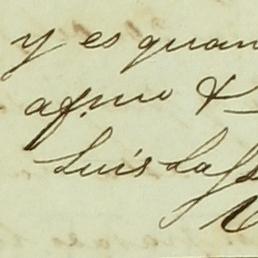 y es quan
afmo &
Luis Laf